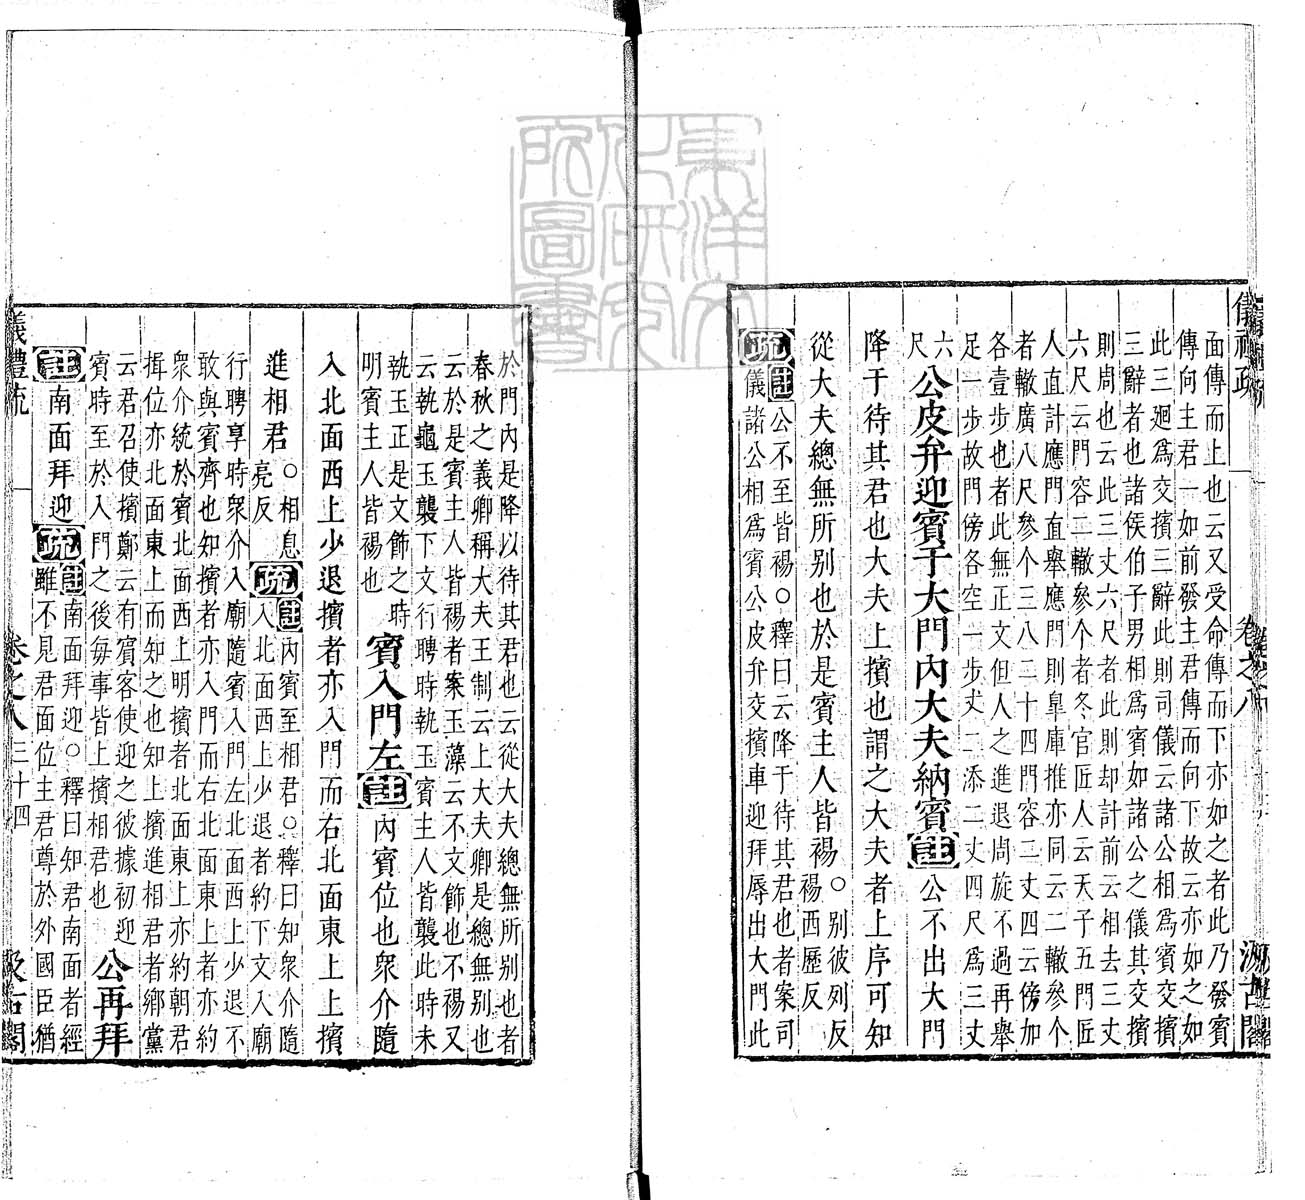 儀禮疏 卷之八 汲古閣
面傳而上也云又受命傳而下亦如之者此乃發賓
傳向主君一如前發主君傳而向下故云亦如之如
此三廻爲交擯三辭此則司儀云諸公相爲賓交擯
三辭者也諸侯伯子男相爲賓如諸公之儀其交擯
則周也云此三丈六尺者此則却計前云相去三丈
六尺云門容二轍參个者冬官匠人云天子五門匠
人直計應門直舉應門則臯庫推亦同云二轍參个
者轍廣八尺參个三八二十四門容二丈四云傍加
各壹步也者此無正文但人之進退周旋不過再舉
足一步故門傍各空一步丈二添二丈四尺爲三丈
六
尺
公皮弁迎賓于大門內大夫納賓註公不出大門
降于待其君也大夫上擯也謂之大夫者上序可知
從大夫總無所别也於是賓主人皆裼○别彼列反
裼西歷反
疏註公不至皆裼○釋曰云降于待其君也者案司
儀諸公相爲賓公皮弁交擯車迎拜辱出大門此
於門內是降以待其君也云從大夫總無所别也者
春秋之義卿稱大夫王制云上大夫卿是總無别也
云於是賓主人皆裼者案玉藻云不文飾也不裼又
云執龜玉襲下文行聘時執玉賓主人皆襲此時未
執玉正是文飾之時
明賓主人皆裼也
賓入門左註內賓位也衆介隨
入北面西上少退擯者亦入門而右北面東上上擯
進相君○相息
亮反
疏註內賓至相君○釋曰知衆介隨
入北面西上少退者約下文入廟
行聘享時衆介入廟隨賓入門左北面西上少退不
敢與賓齊也知擯者亦入門而右北面東上者亦約
衆介統於賓北面西上明擯者北面東上亦約朝君
揖位亦北面東上而知之也知上擯進相君者鄉黨
云君召使擯鄭云有賓客使迎之彼據初迎
賓時至於入門之後每事皆上擯相君也
公再拜
註南面拜迎疏註南面拜迎○釋曰知君南面者經
雖不見君面位主君尊於外國臣猶
儀禮疏 卷之八 三十四 汲古閣